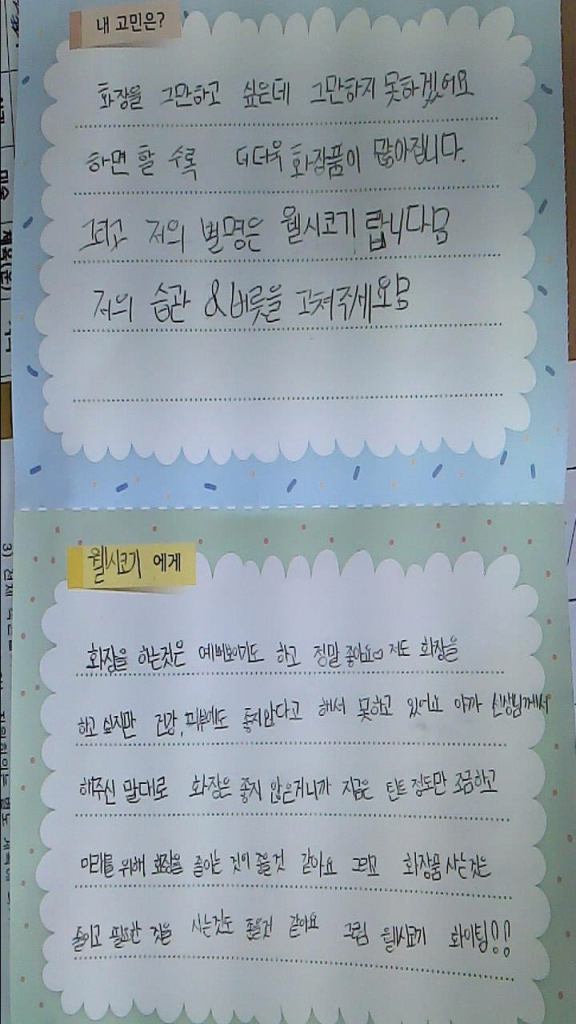 내 고민은?
화장을 그만하고 싶은데 그만하지 못하겠어요
하면 할 수록 더더욱 화장품이 많아집니다.
그리고 저의 별명은 웰시코기 랍니다
저의 습관 & 버릇을 고쳐주세요
웰시코기 에게
화장을 하는것은 예뻐보이기도 하고 정말 좋아요♡ 저도 화장을
하고 싶지만 건강, 피부에도 좋지않다고 해서 못하고 있어요 아까 선생님께서
해주신 말대로 화장은 좋지 않은거니까 지금은 틴트 정도만 조금하고
미래를 위해 화장을 줄이는 것이 좋을것 같아요 그리고 화장품 사는것은
줄이고 필요한 것을 사는것도 좋을것 같아요 그럼 웰시코기 화이팅!!
3)